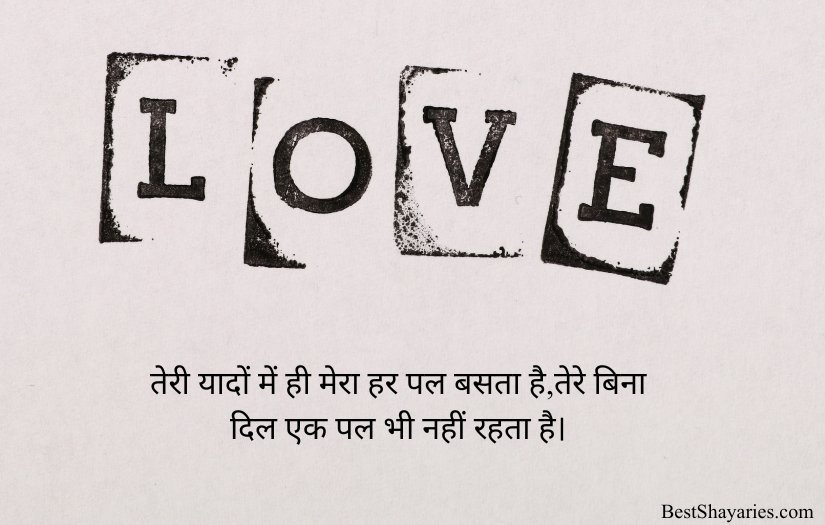 LOVE
तेरी यादों में ही मेरा हर पल बसता है,तेरे बिना
दिल एक पल भी नहीं रहता है।
BestShayaries.com